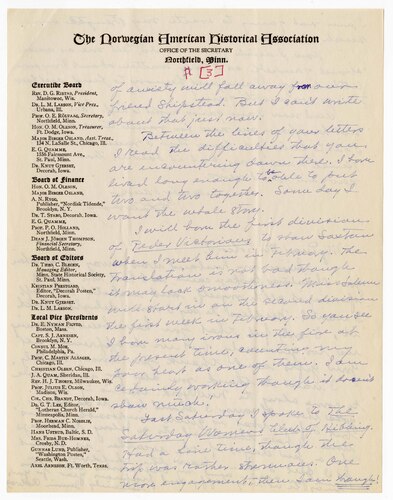 The Norwegian American Historical Association
OFFICE OF THE SECRETARY
Northfield, Minn.
[3]
Executive Board
REV. D. G. RISTAD, President,
Manitowoc, Wis.
DR. L. M. LARSON, Vice Pres.,
Urbana, Ill.
PROF. O. E. RÖLVAAG, Secretary,
Northfield, Minn.
HON. O. M. OLESON, Treasurer,
Ft. Dodge, Iowa.
MAJOR BIRGER OSLAND, Asst. Treas.,
134 N. LaSalle St., Chicago, Ill.
E. G. QUAMME,
1535 Fairmount Ave.,
St. Paul, Minn.
DR. KNUT GJERSET,
Decorah, Iowa.
Board of Finance
HON. O. M. OLESON,
MAJOR BIRGER OSLAND,
A. N. RYGG,
Publisher, "Nordisk Tidende,"
Brooklyn, N. Y.
DR. T. STABO, Decorah, Iowa.
E. G. QUAMME,
St. Paul, Minn.
PROF. P. O. HOLLAND,
Northfield, Minn.
DEAN J. JÖRGEN THOMPSON,
Financial Secretary,
Northfield, Minn.
Board of Editors
DR. THEO. C. BLEGEN,
Managing Editor,
Minn. State Historical Society,
St. Paul, Minn.
KRISTIAN PRESTGARD,
Editor, "Decorah Posten,"
Decorah, Iowa.
DR. KNUT GJERSET,
DR. L. M. LARSON.
Local Vice Presidents
DR. E. NYMAN FIGVED,
Boston, Mass.
CAPT. S. J. ARNESEN,
Brooklyn, N. Y.
CONSUL M. MOE,
Philadelphia, Pa.
PROF. C. MARTIN ALSAGER,
Chicago, Ill.
CHRISTIAN OLSEN, Chicago, Ill.
J. A. QUAM, Sheridan, Ill.
REV. H. J. THORPE, Milwaukee, Wis.
PROF. JULIUS E. OLSON,
Madison, Wis.
COL. CHR. BRANDT, Decorah, Iowa.
DR. G. T. LEE, Editor,
"Lutheran Church Herald,"
Minneapolis, Minn.
PROF. HERMAN C. NORDLIE,
Moorhead, Minn.
HANS USTRUD, Baltic, S. D.
MRS. FRIDA BUE-HOMNES,
Crosby, N. D.
GUNNAR LUND, Publisher,
"Washington Posten,"
Seattle, Wash.
AXEL ARNESON, Ft. Worth, Texas.
of anxiety will fall away from our
friend Shipstead. But I can't write
about that just now.
Between the lines of your letters
I read the difficulties that you
are encountering down there. I have
lived long enough to be able to put
two and two together. Some day I
want the whole story.
I will have the first division
of Peder Victorious to show Saxton
when I meet him in February. The
translation is not bad though
it may lack smoothness. Miss Solum
will start in on the second division
the first week in February. So you see
I have many irons in the fire at
the present time, counting my
poor heart as one of them. I am
certainly working though it doesn't
show much!
Last Saturday I spoke to The
Saturday Womens Club of Hibbing.
Had a fine time, though the
trip was rather strenuous. One
more engagement, then I am through!